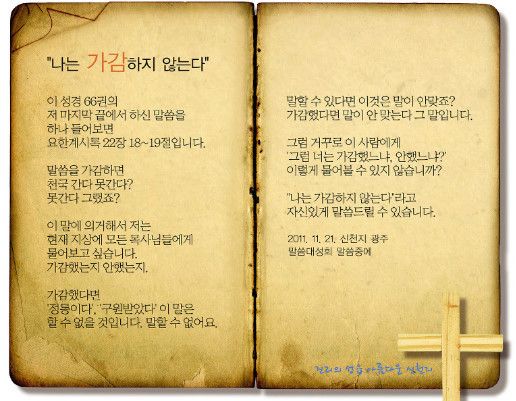 "나는 가감하지 않는다"
이 성경 66권의
저 마지막 끝에서 하신 말씀을
하나 들어보면
요한계시록 22장 18~19절입니다.
말씀을 가감하면
천국 간다 못간다?
못간다 그랬죠?
이 말에 의거해서 저는
현재 지상에 모든 목사님들에게
물어보고 싶습니다.
가감했는지 안했는지.
가감했다면
'정통이다', '구원받았다' 이 말은
할 수 없을 것입니다. 말할 수 없어요.
말할 수 있다면 이것은 말이 안맞죠?
가감했다면 말이 안 맞는다 그 말입니다.
그럼 거꾸로 이 사람에게
'그럼 너는 가감했느냐, 안했느냐?'
이렇게 물어볼 수 있지 않습니까?
"나는 가감하지 않는다"라고
자신있게 말씀드릴 수 있습니다.
2011. 11. 21. 신천지 광주
말씀대성회 말씀중에
진리의 성읍 아름다운 신천지